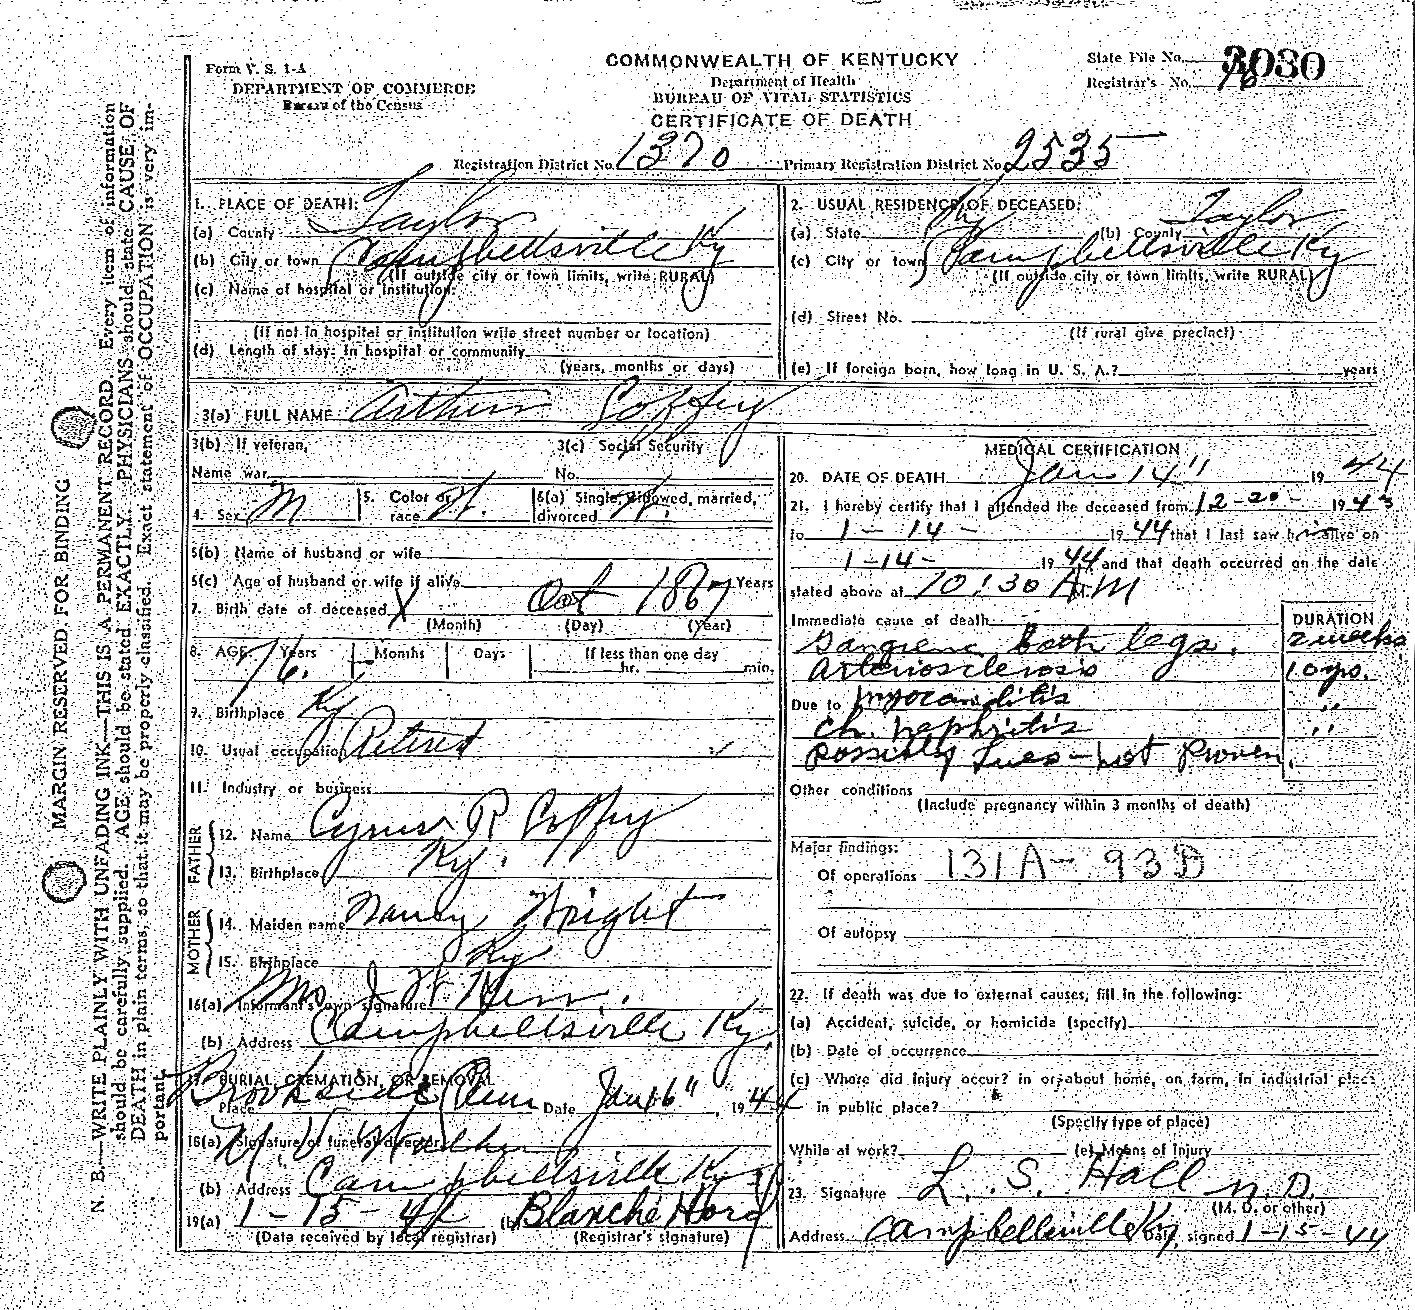 Form V. S. 1-A
DEPARTMENT OF COMMERCE
Bureau of the Census
COMMONWEALTH OF KENTUCKY
Department of Health
BUREAU OF VITAL STATISTICS
CERTIFICATE OF DEATH
State File No. 3030
Registrar's No. 16
Registration District No. 1370 Primary Registration District No. 2535
1. PLACE OF DEATH:
(a) County Taylor
(b) City or town Campbellsville Ky
(If outside city or town limits, write RURAL)
(c) Name of hospital or institution:
(If not in hospital or institution write street number or location)
(d) Length of stay: In hospital or community
(years, months or days)
2. USUAL RESIDENCE OF DECEASED:
(a) State Ky (b) County Taylor
(c) City or town Campbellsville Ky
(If outside city or town limits, write RURAL)
(d) Street No.
(If rural give precinct)
(e) If foreign born, how long in U. S. A.? years
3(a) FULL NAME Arthur Coffey
3(b) If veteran,
Name war
3(c) Social Security
No.
4. Sex M 5. Color or race W. 6(a) Single, widowed, married, divorced W.
5(b) Name of husband or wife
5(c) Age of husband or wife if alive Years
7. Birth date of deceased X Oct 1867
(Month) (Day) (Year)
8. AGE 76 Years Months Days If less than one day
hr. min.
9. Birthplace Ky
10. Usual occupation Retired
11. Industry or business
FATHER
12. Name Cyrus R Coffey
13. Birthplace Ky.
MOTHER
14. Maiden name Nancy Wright
15. Birthplace Ky
16(a) Informant's own signature Mrs. J. W. Kerr.
(b) Address Campbellsville Ky.
17. BURIAL, CREMATION, OR REMOVAL
Place Brookside Cem Date Jan 16" , 1944
18(a) Signature of funeral director
(b) Address Campbellsville Ky
19(a) 1-15-44 (b) Blanche Hord
(Date received by local registrar) (Registrar's signature)
MEDICAL CERTIFICATION
20. DATE OF DEATH Jan 14" 1944
21. I hereby certify that I attended the deceased from 12-20- 1943
to 1-14- 1944 that I last saw h alive on
1-14- 1944 and that death occurred on the date
stated above at 10:30 A M
Immediate cause of death DURATION
Gangrene both legs. 2 weeks
Arteriosclerosis 10 yrs.
Due to myocarditis "
Ch. nephritis "
possibly Lues - not proven.
Other conditions
(Include pregnancy within 3 months of death)
Major findings:
Of operations 131A - 93D
Of autopsy
22. If death was due to external causes, fill in the following:
(a) Accident, suicide, or homicide (specify)
(b) Date of occurrence
(c) Where did injury occur? in or about home, on farm, in industrial place
in public place?
(Specify type of place)
While at work? (e) Means of Injury
23. Signature L. S. Hall M.D.
(M. D. or other)
Address Campbellsville Ky Date signed 1-15-44
MARGIN RESERVED FOR BINDING
N. B.—WRITE PLAINLY WITH UNFADING INK—THIS IS A PERMANENT RECORD. Every item of information
should be carefully supplied. AGE should be stated EXACTLY. PHYSICIANS should state CAUSE OF
DEATH in plain terms, so that it may be properly classified. Exact statement of OCCUPATION is very im-
portant.